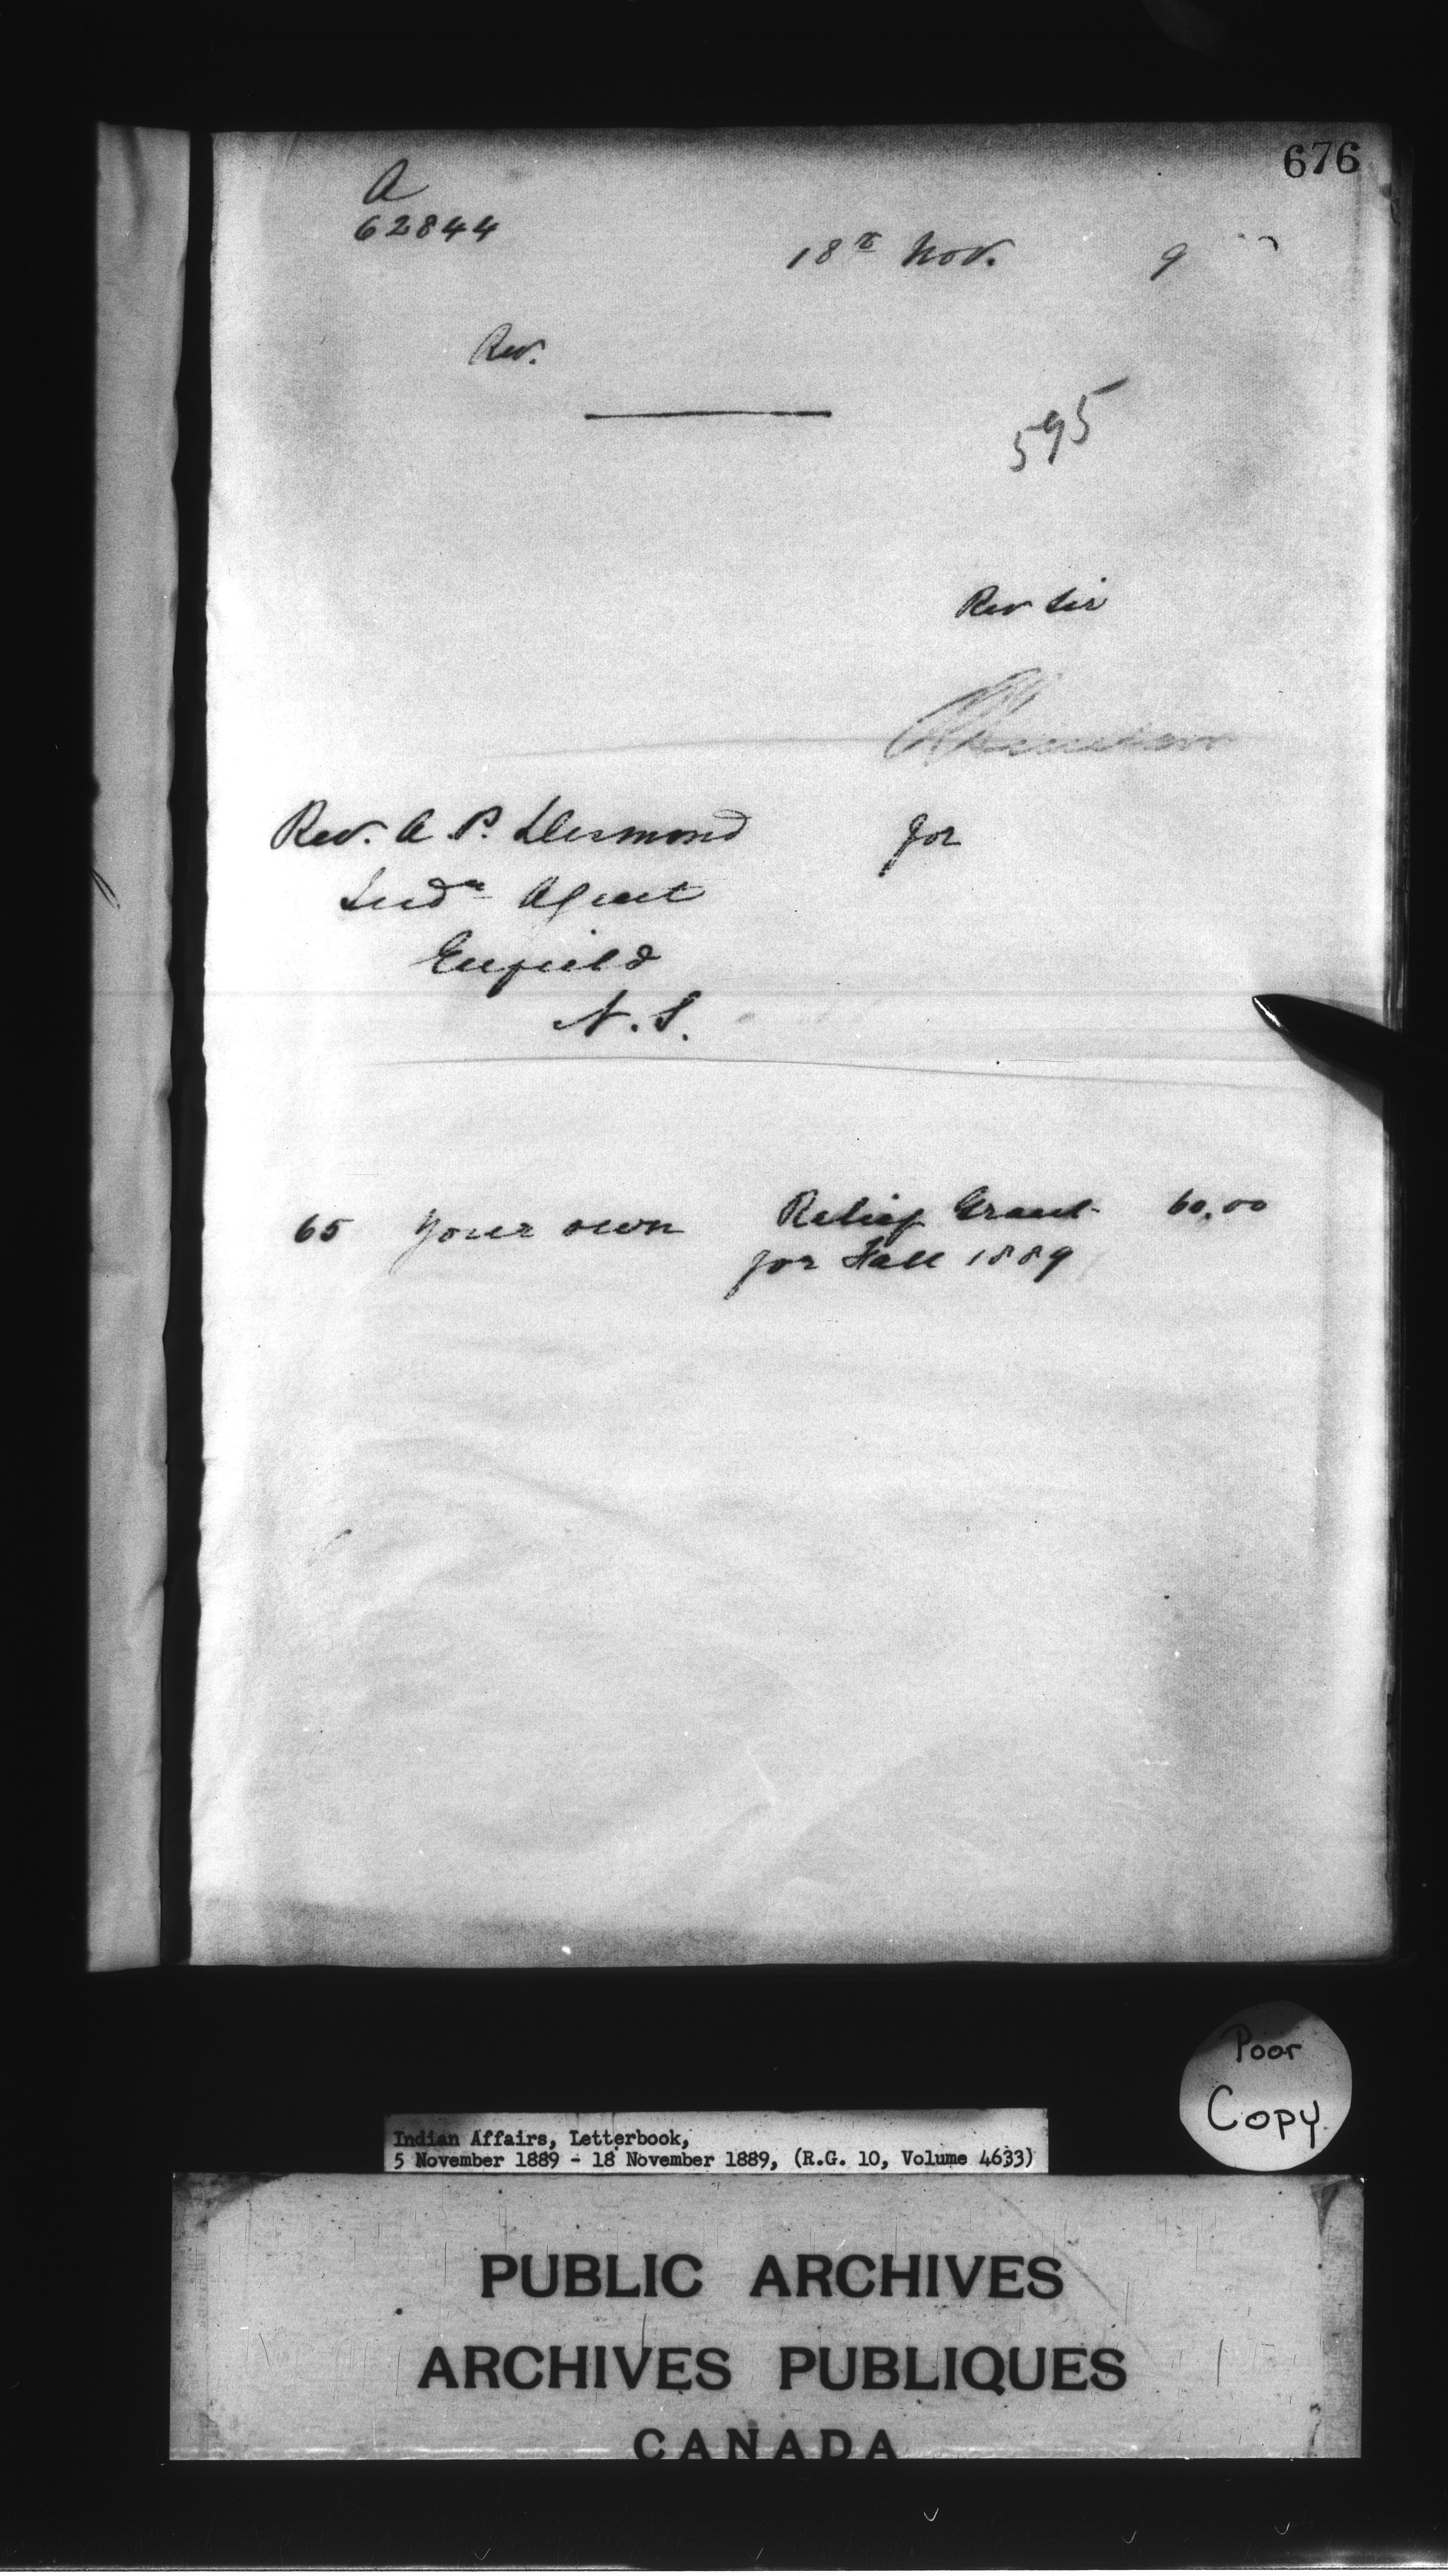 676
A
62844
18th Nov. 9
Rev.
595
Rev Sir
Rev. A. P. Desmond for
Indn Agent
Enfield
N. S.
65 your own Relief Grant 60.00
for Fall 1889
Poor
Copy
Indian Affairs, Letterbook,
5 November 1889 - 18 November 1889, (R.G. 10, Volume 4633)
PUBLIC ARCHIVES
ARCHIVES PUBLIQUES
CANADA